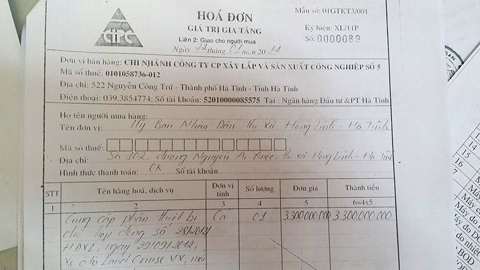 CIPC
HOÁ ĐƠN
GIÁ TRỊ GIA TĂNG
Liên 2: Giao cho người mua
Ngày 22 tháng 01 năm 20
Mẫu số: 01GTKT3/001
Ký hiệu: XL/11P
Số: 0000089
Đơn vị bán hàng: CHI NHÁNH CÔNG TY CP XÂY LẮP VÀ SẢN XUẤT CÔNG NGHIỆP SỐ 5
Mã số thuế: 0101058736-012
Địa chỉ: 522 Nguyễn Công Trứ - Thành phố Hà Tĩnh - Tỉnh Hà Tĩnh
Điện thoại: 039.3854774: Số tài khoản: 52010000085575 Tại: Ngân hàng Đầu tư &PT Hà Tĩnh
Họ tên người mua hàng:
Tên đơn vị: Uỷ Ban Nhân Dân thị xã Hồng Lĩnh - Hà Tĩnh
Mã số thuế:
Địa chỉ: Số 102, đường Nguyễn Ái Quốc, thị xã Hồng Lĩnh - Hà Tĩnh
Hình thức thanh toán: CK Số tài khoản
STT Tên hàng hoá, dịch vụ Đơn vị tính Số lượng Đơn giá Thành tiền
1 2 3 4 5 6=4x5
Cung cấp phần thiết bị Co 01 3300.000.000 3.300.000.000
hợp đồng số
HĐXL ngày
Xe ôtô Land Cruise VX, mới
Máy
Máy do
Máy do D
Máy do
BOD